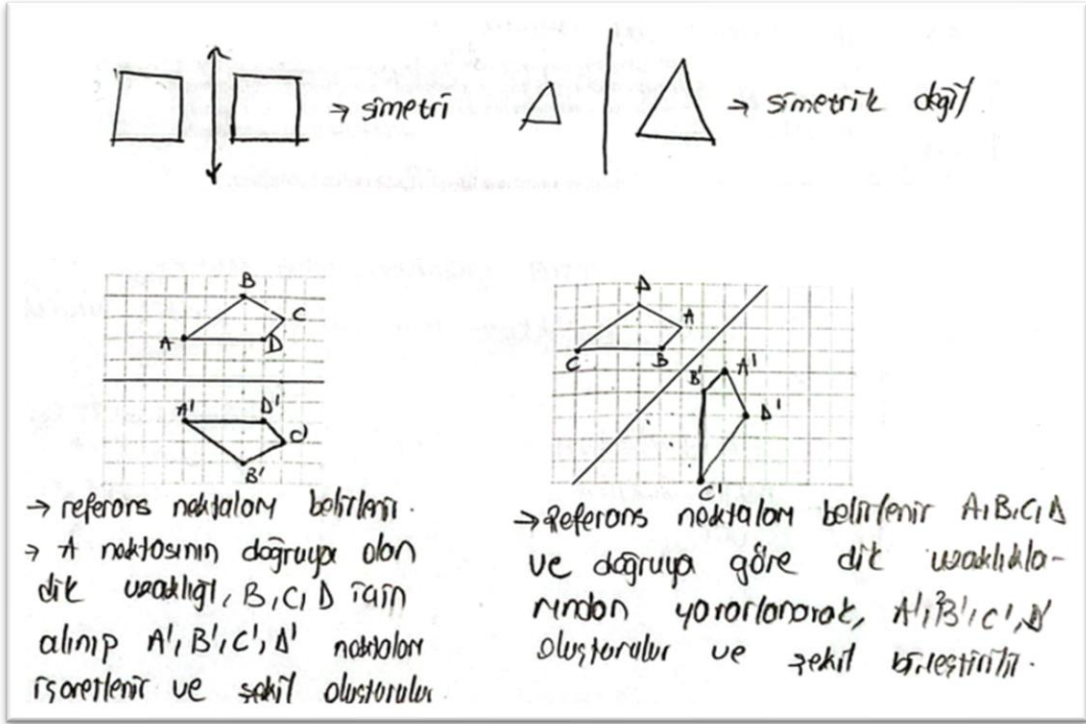 → simetri
→ simetrik değil
B
C
A
D
A'
D'
C'
B'
→ referans noktaları belirlenir.
→ A noktasının doğruya olan
dik uzaklığı, B, C, D için
alınıp A', B', C', D' noktaları
işaretlenir ve şekil oluşturulur.
D
A
C
B
B'
A'
D'
C'
→ Referans noktaları belirlenir A, B, C, D
ve doğruya göre dik uzaklıkla-
rından yararlanarak, A', B', C', D'
oluşturulur ve şekil birleştirilir.